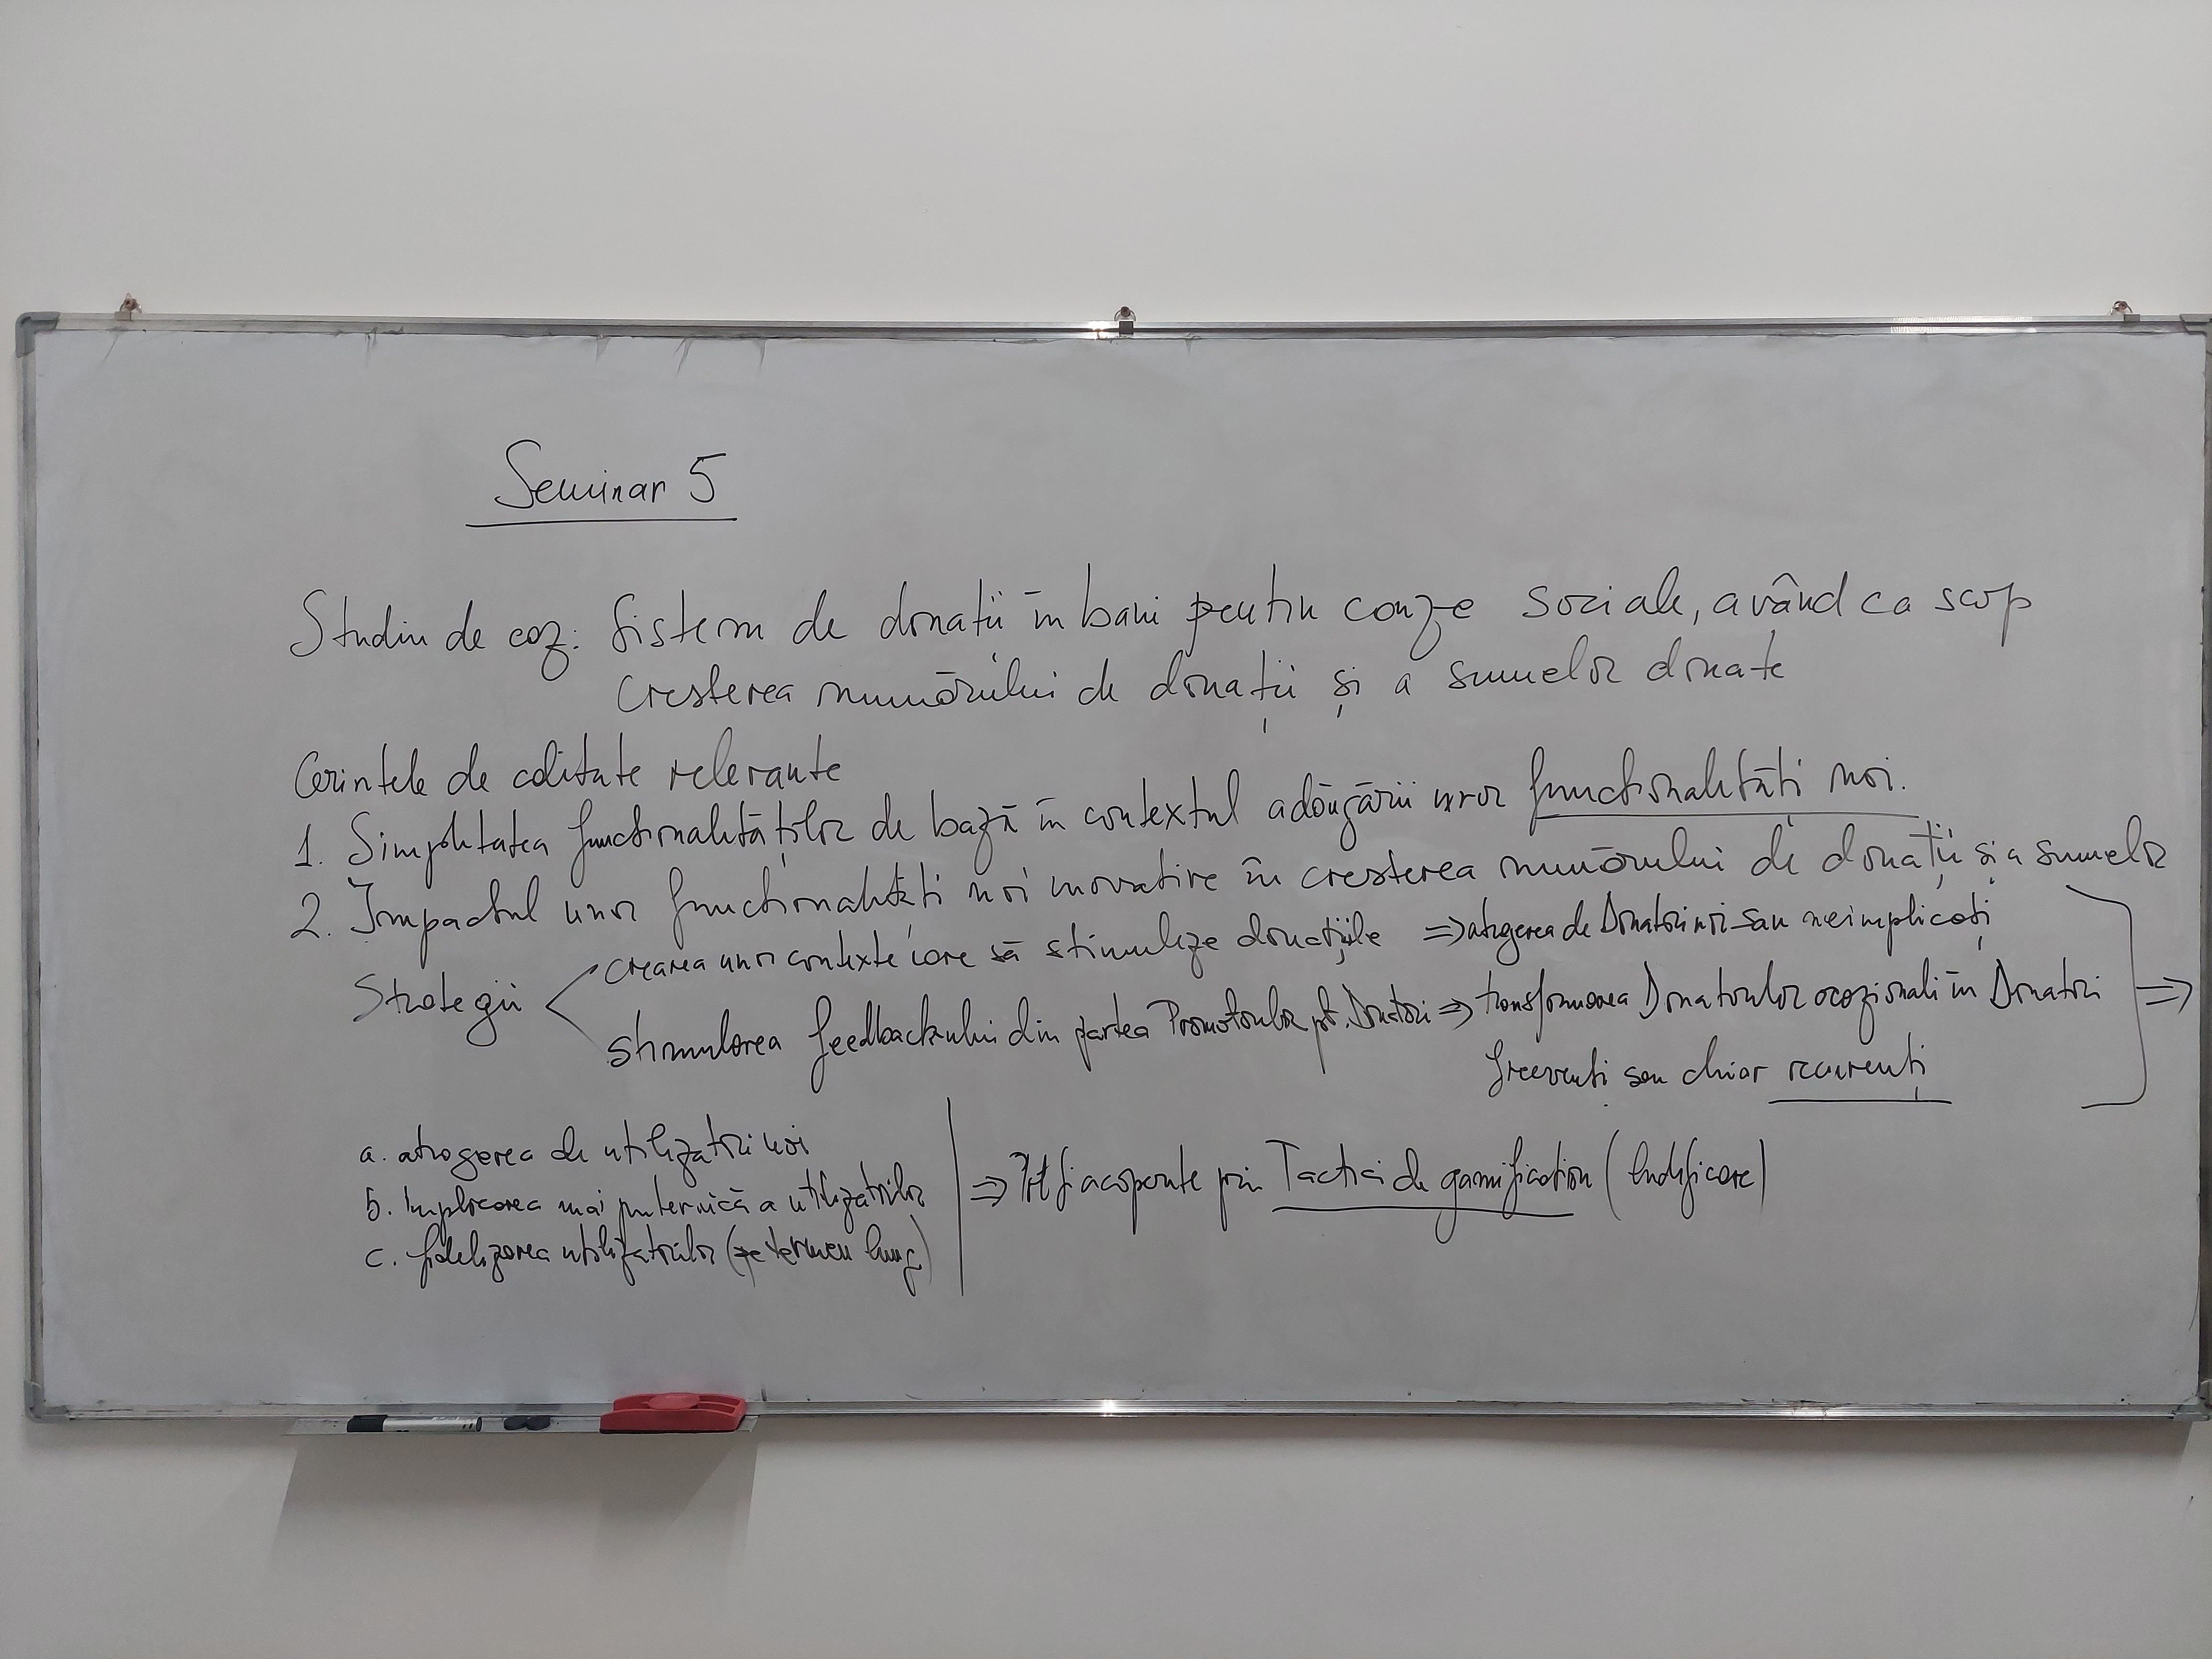 Seminar 5
Studiu de caz: Sistem de donații în bani pentru cauze sociale, având ca scop
creșterea numărului de donații și a sumelor donate
Cerințele de calitate relevante
1. Simplitatea funcționalităților de bază în contextul adăugării unor funcționalități noi.
2. Impactul unor funcționalități noi inovative în creșterea numărului de donații și a sumelor
Strategii
crearea unor contexte care să stimuleze donațiile => atragerea de Donatori noi sau neimplicați
stimularea feedback-ului din partea Promotorilor pt. Donatori => transformarea Donatorilor ocazionali în Donatori
frecvenți sau chiar recurenți
=>
a. atragerea de utilizatori noi
b. Implicarea mai puternică a utilizatorilor
c. fidelizarea utilizatorilor (pe termen lung)
=> Pot fi acoperite prin Tactici de gamification (ludificare)